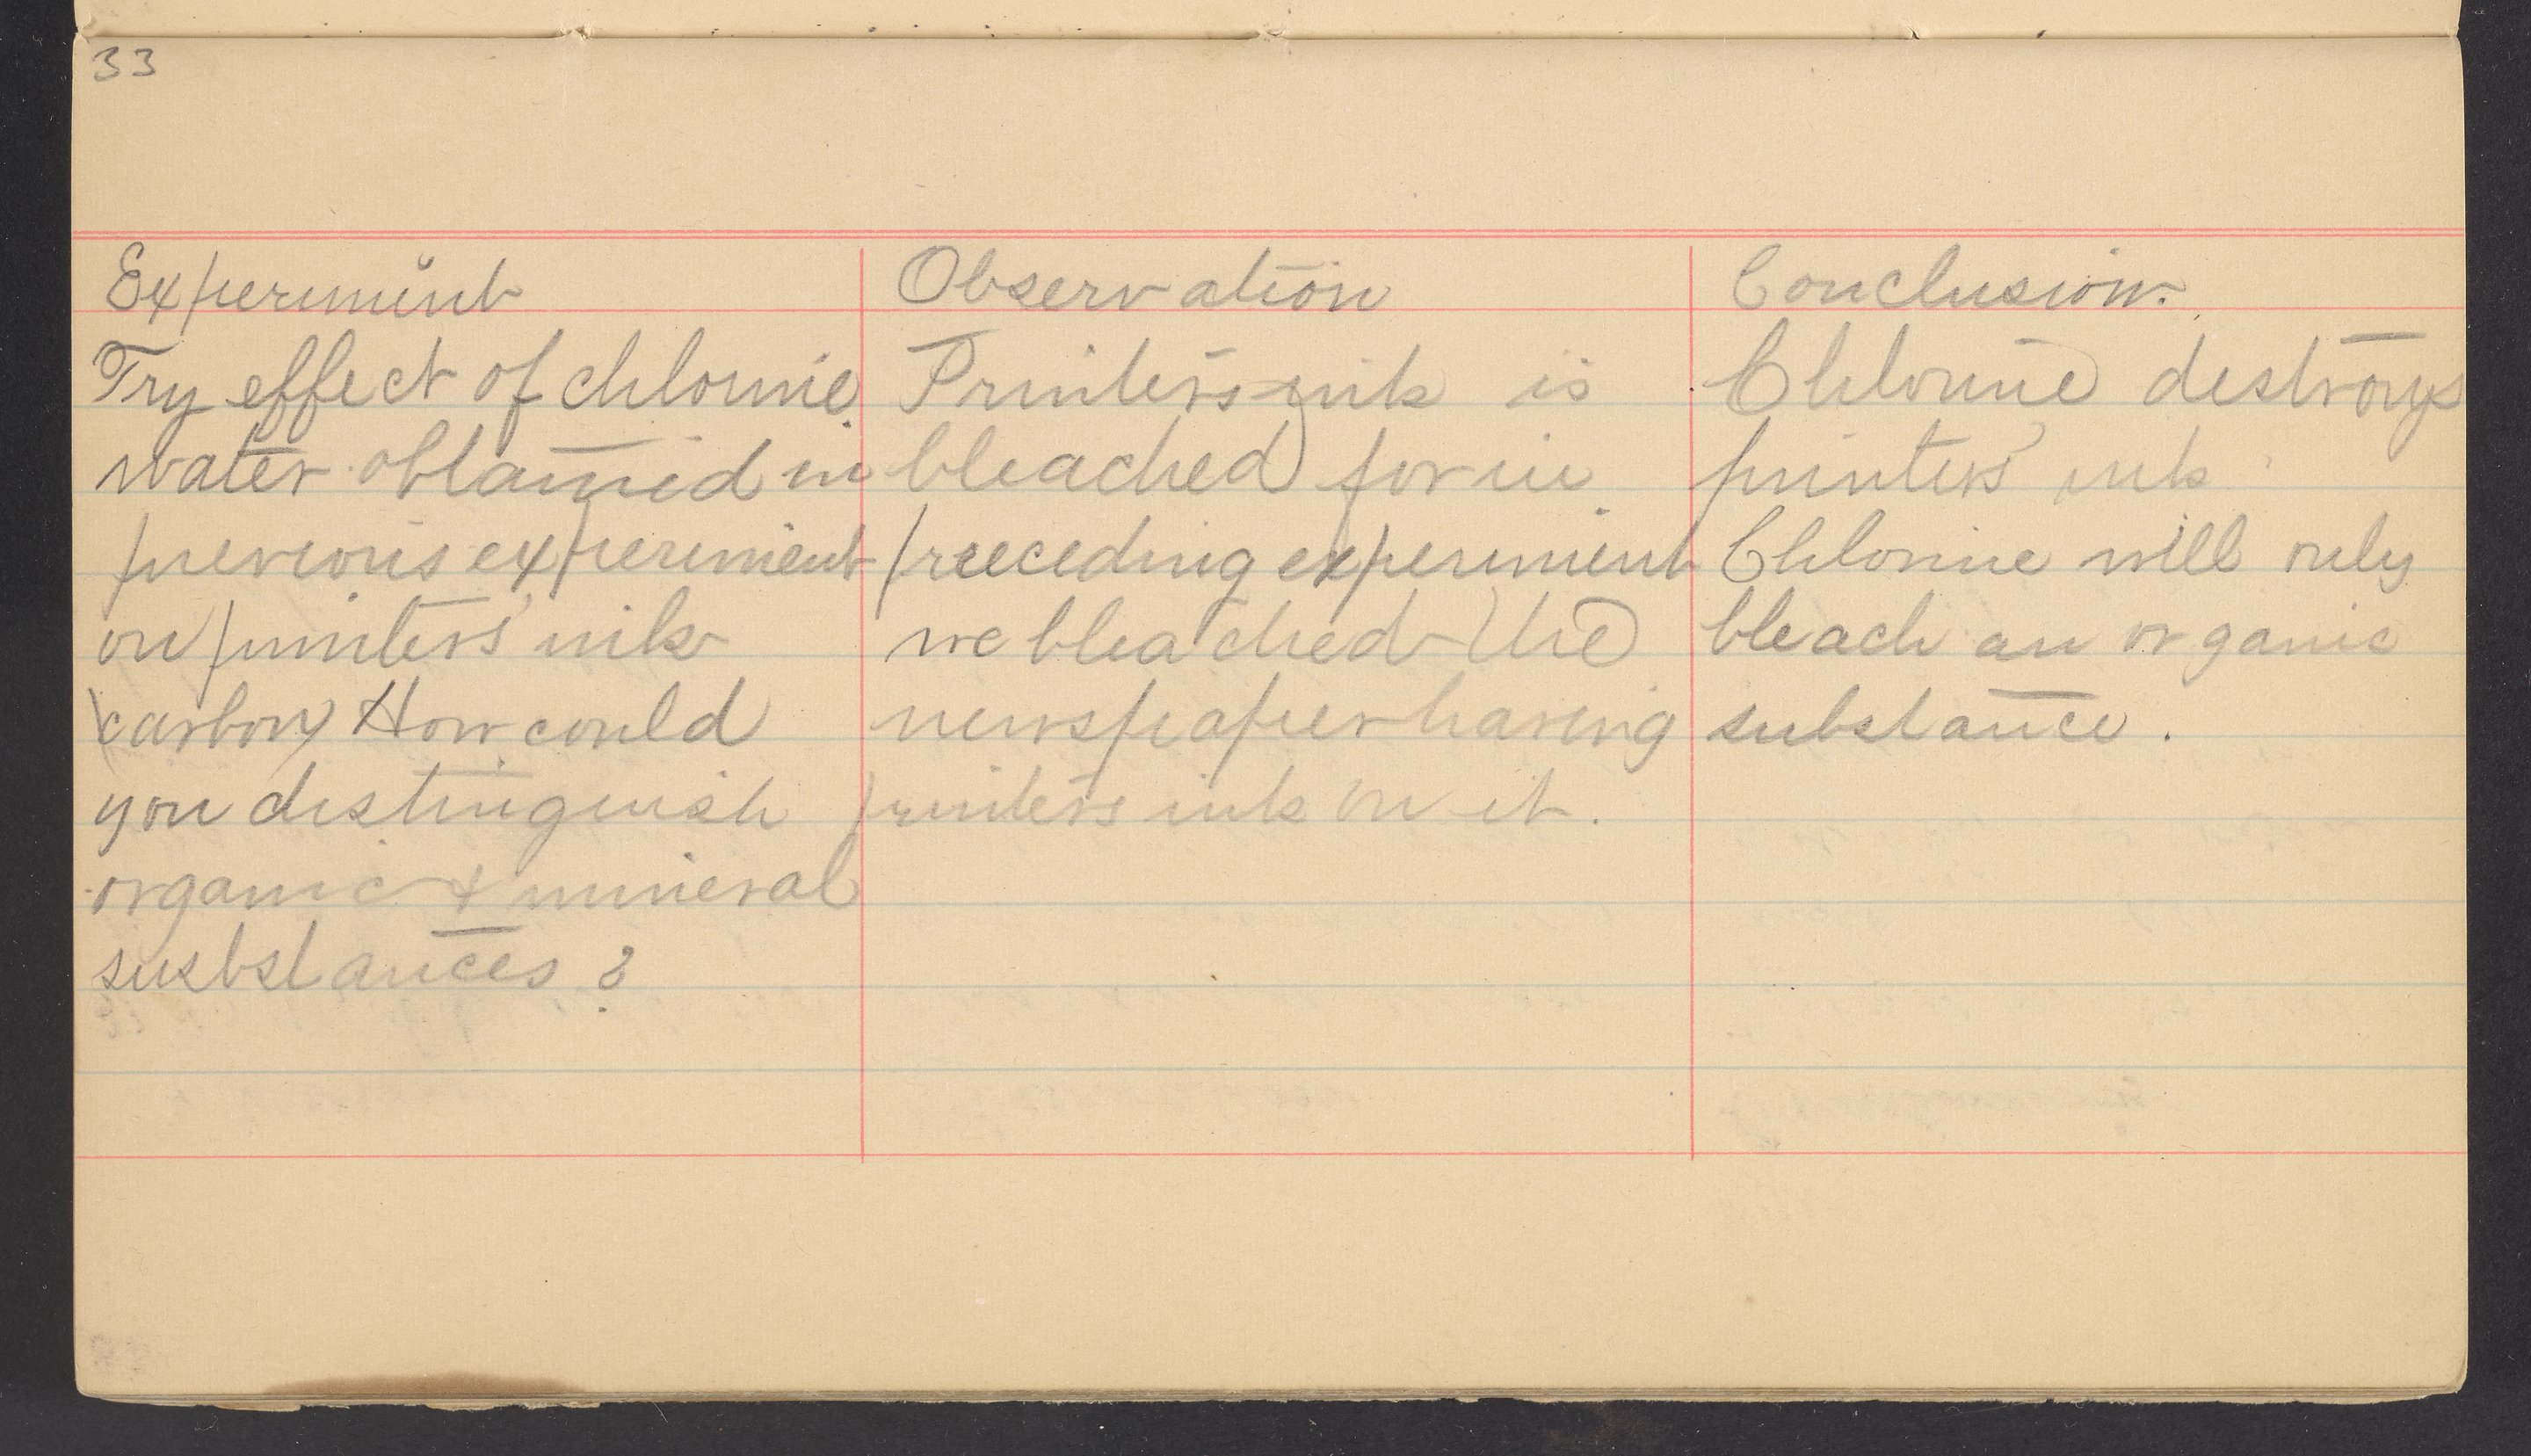 33
Experiment
Try effect of chlorine
water obtained in
previous experiment
on printers' ink
(carbon) How could
you distinguish
organic & mineral
susbstances?
Observation
Printers ink is
bleached for in
preeceding experiment
we bleached the
newspaper having
printers ink on it.
Conclusion.
Chlorine destroys
printers' ink
Chlorine will only
bleach an organic
substance.